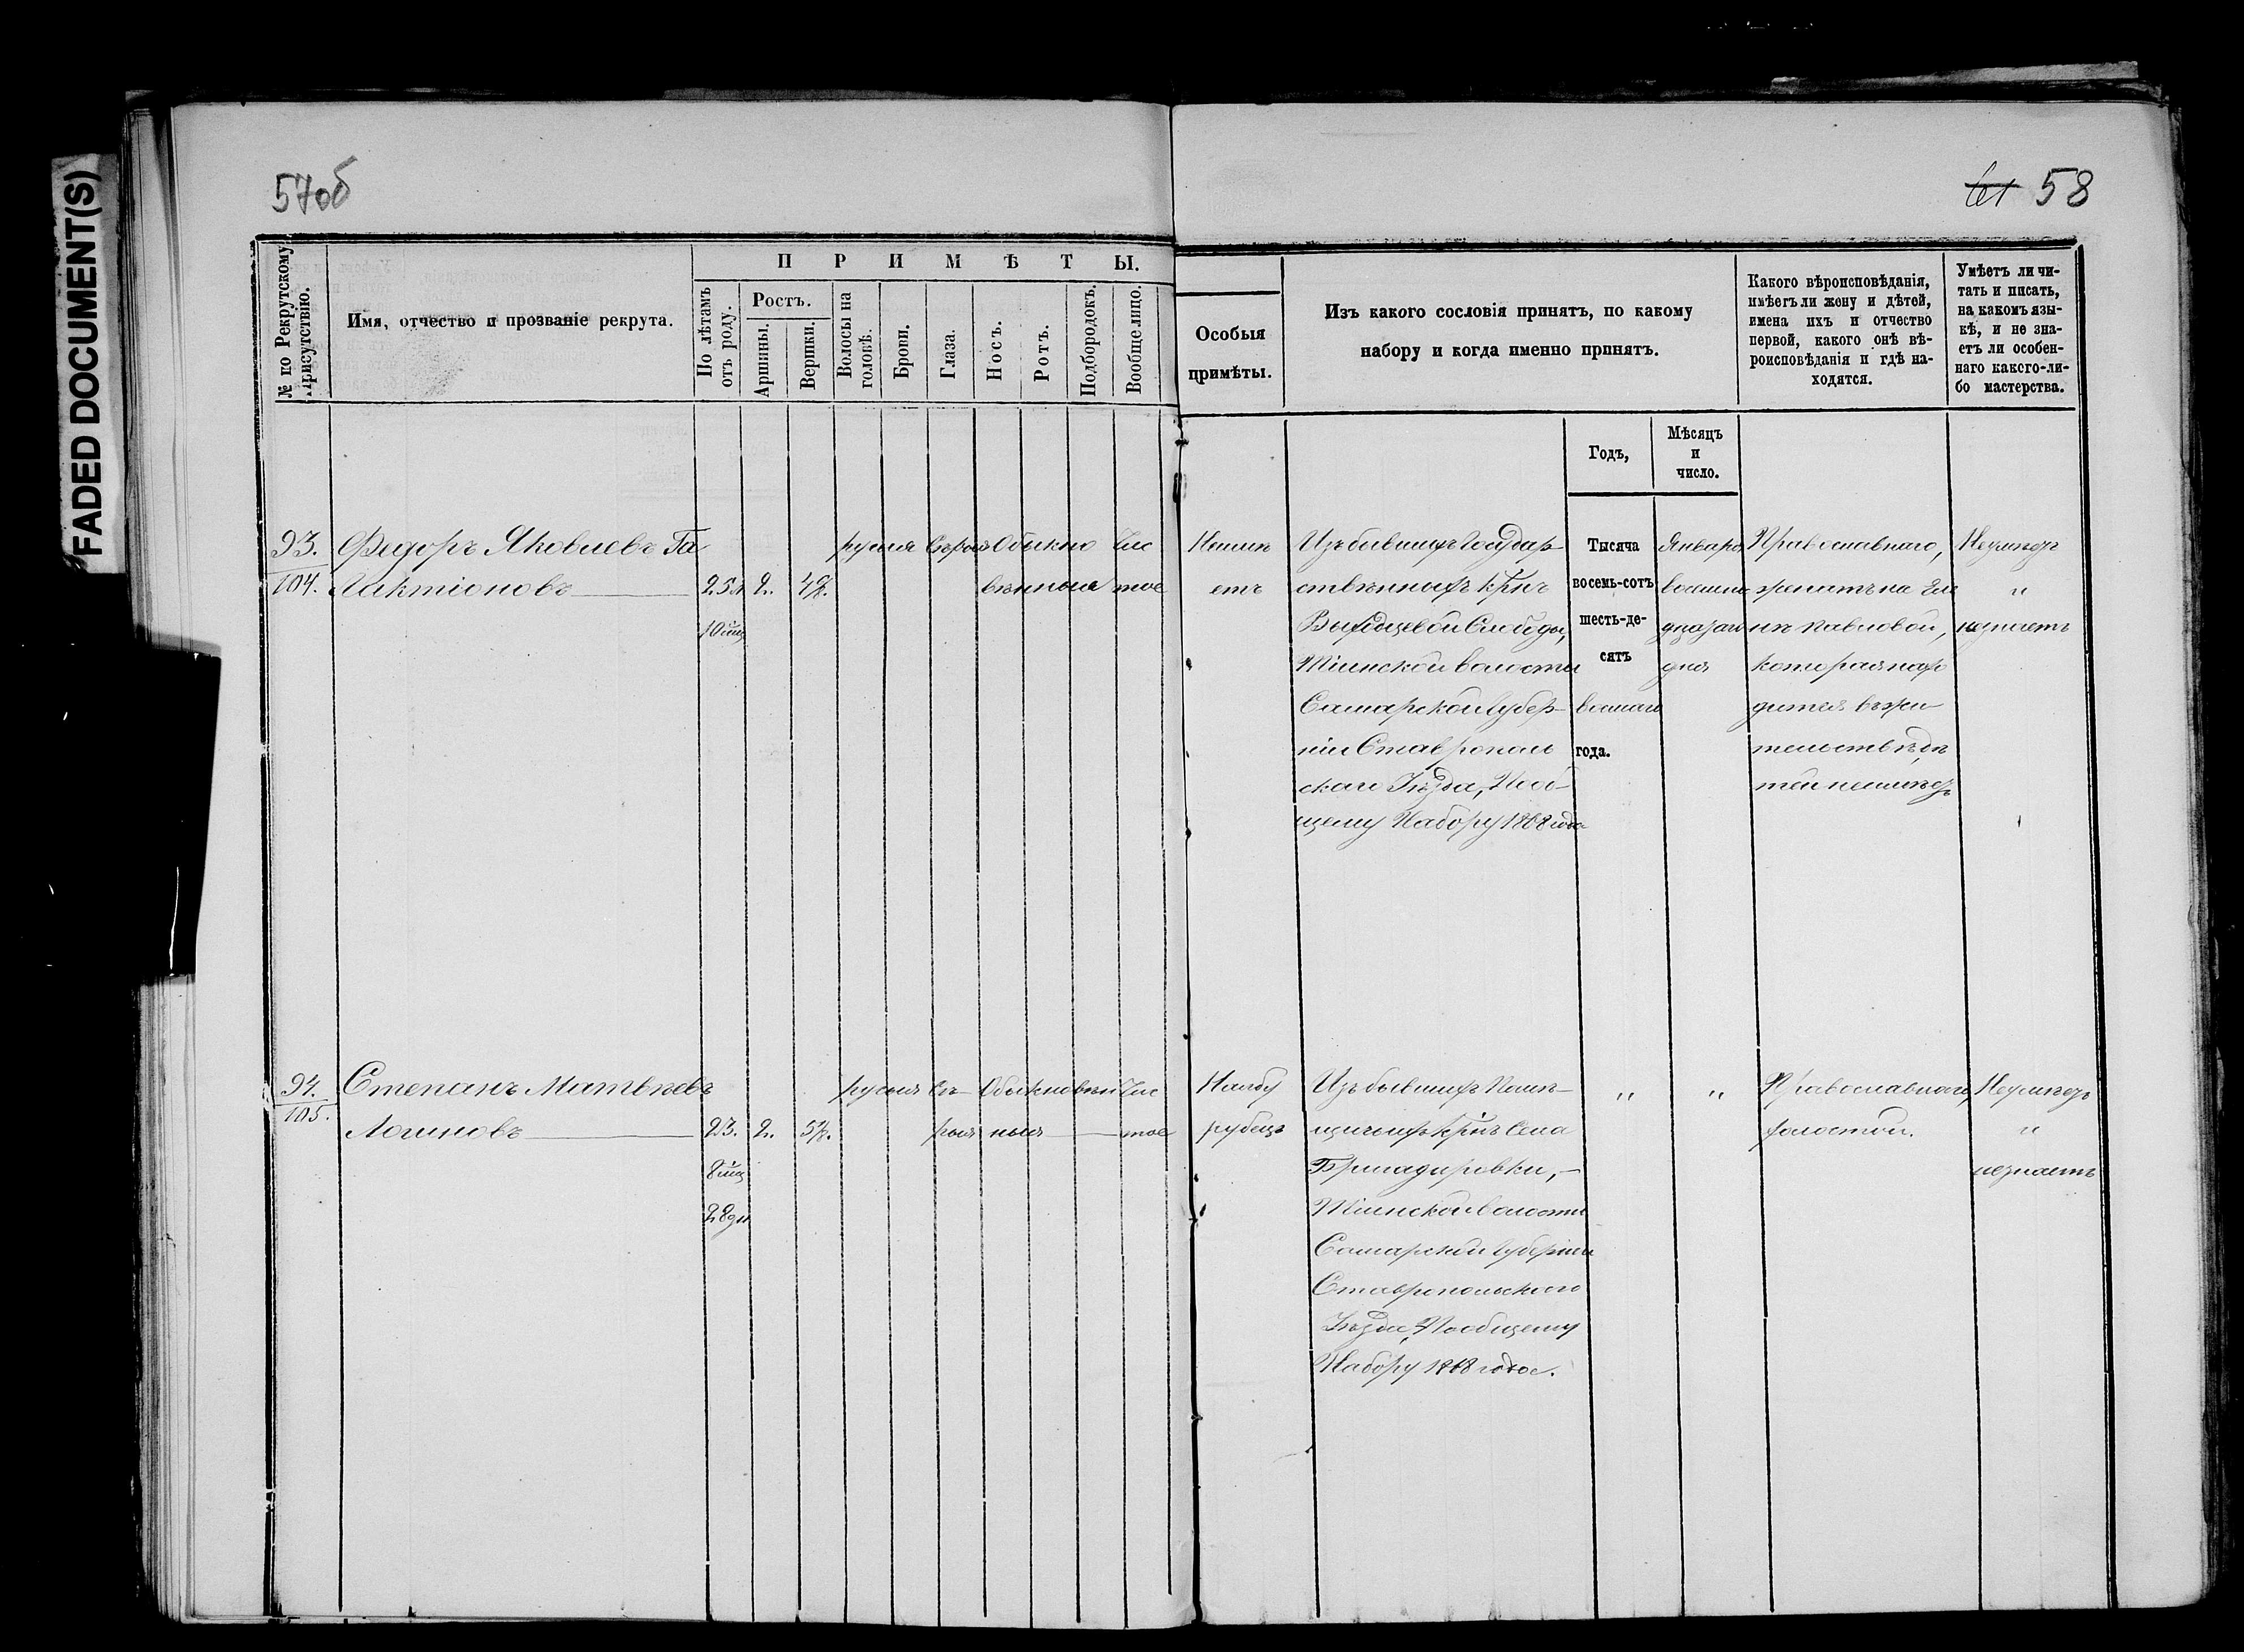 FADED DOCUMENT(S)
57об
58
№ по Рекрутскому присутствію.
Имя, отчество и прозваніе рекрута.
ПРИМѢТЫ.
По лѣтамъ отъ роду.
Ростъ.
Аршины.
Вершки.
Волосы на головѣ.
Брови.
Глаза.
Носъ.
Ротъ.
Подбородокъ.
Вообще лицо.
Особыя
примѣты.
Изъ какого сословія принятъ, по какому
набору и когда именно принятъ.
Какого вѣроисповѣданія,
имѣетъ ли жену и дѣтей,
имена ихъ и отчество
первой, какого онѣ вѣ-
роисповѣданія и гдѣ на-
ходятся.
Умѣетъ ли чи-
тать и писать,
на какомъ язы-
кѣ, и не зна-
етъ ли особен-
наго какого-ли-
бо мастерства.
Годъ,
Мѣсяцъ
и
число.
93.
104.
Федоръ Яковлевъ Га
Лактіоновъ
25 л
10 мц
2.
4/8.
русыя
Сѣрыя
Обыкно
венныя
Чис
тое
Неимѣ
етъ
Изъ бывшихъ Государ-
ственныхъ крнъ
Слободы,
Тіинской волости
Самарской Губер-
ніи Ставрополь
скаго Уѣзда, Пооб-
щему Набору 1868 года
Тысяча
восемь-сотъ
шесть-де-
сятъ
восьмаго
года.
Января
дня
Православнаго,
женатъ на
нѣ Павловой,
которая нахо
дится въ жи
тельствѣ, дѣ
тей неимѣетъ
Неумѣетъ
"
незнаетъ
94.
105.
Степанъ Матвѣевъ
Логиновъ
23.
8 мц
28 дн
2.
5/8.
русыя
Сѣ-
рыя
Обыкновен
ныя
Чис
тое
На лбу
рубецъ
Изъ бывшихъ Помѣ-
щичьихъ крнъ Села
Бригадировки,
Тіинской волости
Самарской Губерніи
Ставропольскаго
Уѣзда, Пообщему
Набору 1868 года.
"
"
Православнаго,
холостой.
Неумѣетъ
"
незнаетъ